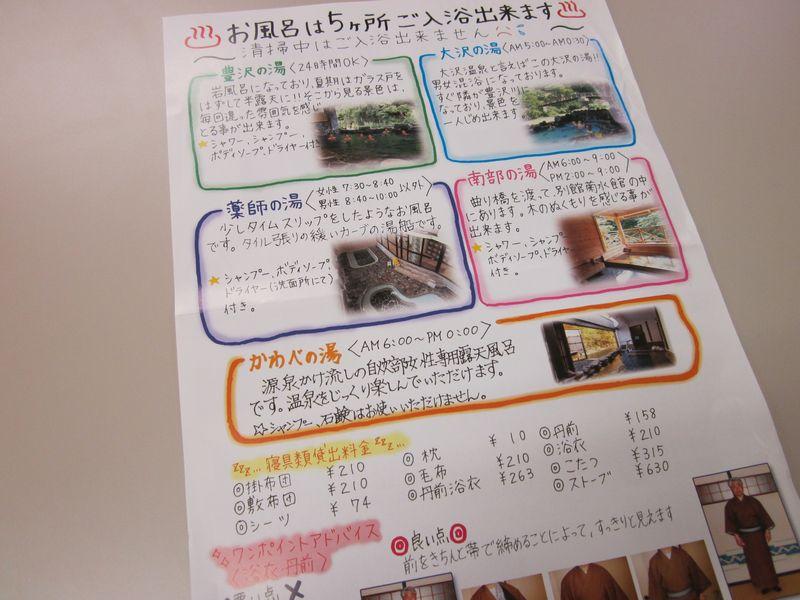 お風呂は5ヶ所ご入浴出来ます
～清掃中はご入浴出来ません
豊沢の湯〈24時間OK〉
岩風呂になっており、夏期はガラス戸を
はずして半露天に!!そこから見る景色は、
毎回違った雰囲気を感じ
とる事が出来ます。
★シャワー、シャンプー、
ボディソープ、ドライヤー付き
大沢の湯〈AM5:00~AM0:30〉
大沢温泉と言えばこの大沢の湯!!
男女混浴になっております。
すぐ隣が豊沢川に
なっており、景色を
一人じめ出来ます。
薬師の湯〈女性 7:30~8:40
男性 8:40~10:00以外〉
少しタイムスリップをしたようなお風呂
です。タイル張りの緩いカーブの湯船です。
★シャンプー、ボディソープ、
ドライヤー(洗面所にて)
付き。
南部の湯〈AM6:00~9:00
PM2:00~9:00〉
曲り橋を渡って、別館菊水館の中
にあります。木のぬくもりを感じる事が
出来ます。
★シャワー、シャンプー
ボディソープ、ドライヤー
付き。
かわべの湯〈AM6:00~PM0:00〉
源泉かけ流しの自炊部女性専用露天風呂
です。温泉をじっくり楽しんでいただけます。
☆シャンプー、石鹸はお使いいただけません。
zzz...寝具類貸出料金zzz...
◎掛布団 ¥210
◎敷布団 ¥210
◎シーツ ¥74
◎枕 ¥10
◎毛布 ¥210
◎丹前浴衣 ¥263
◎丹前 ¥158
◎浴衣 ¥210
◎こたつ ¥315
◎ストーブ ¥630
ワンポイントアドバイス
〈浴衣・丹前〉
◎良い点◎
前をきちんと帯で締めることによって、すっきりと見えます
悪い点×